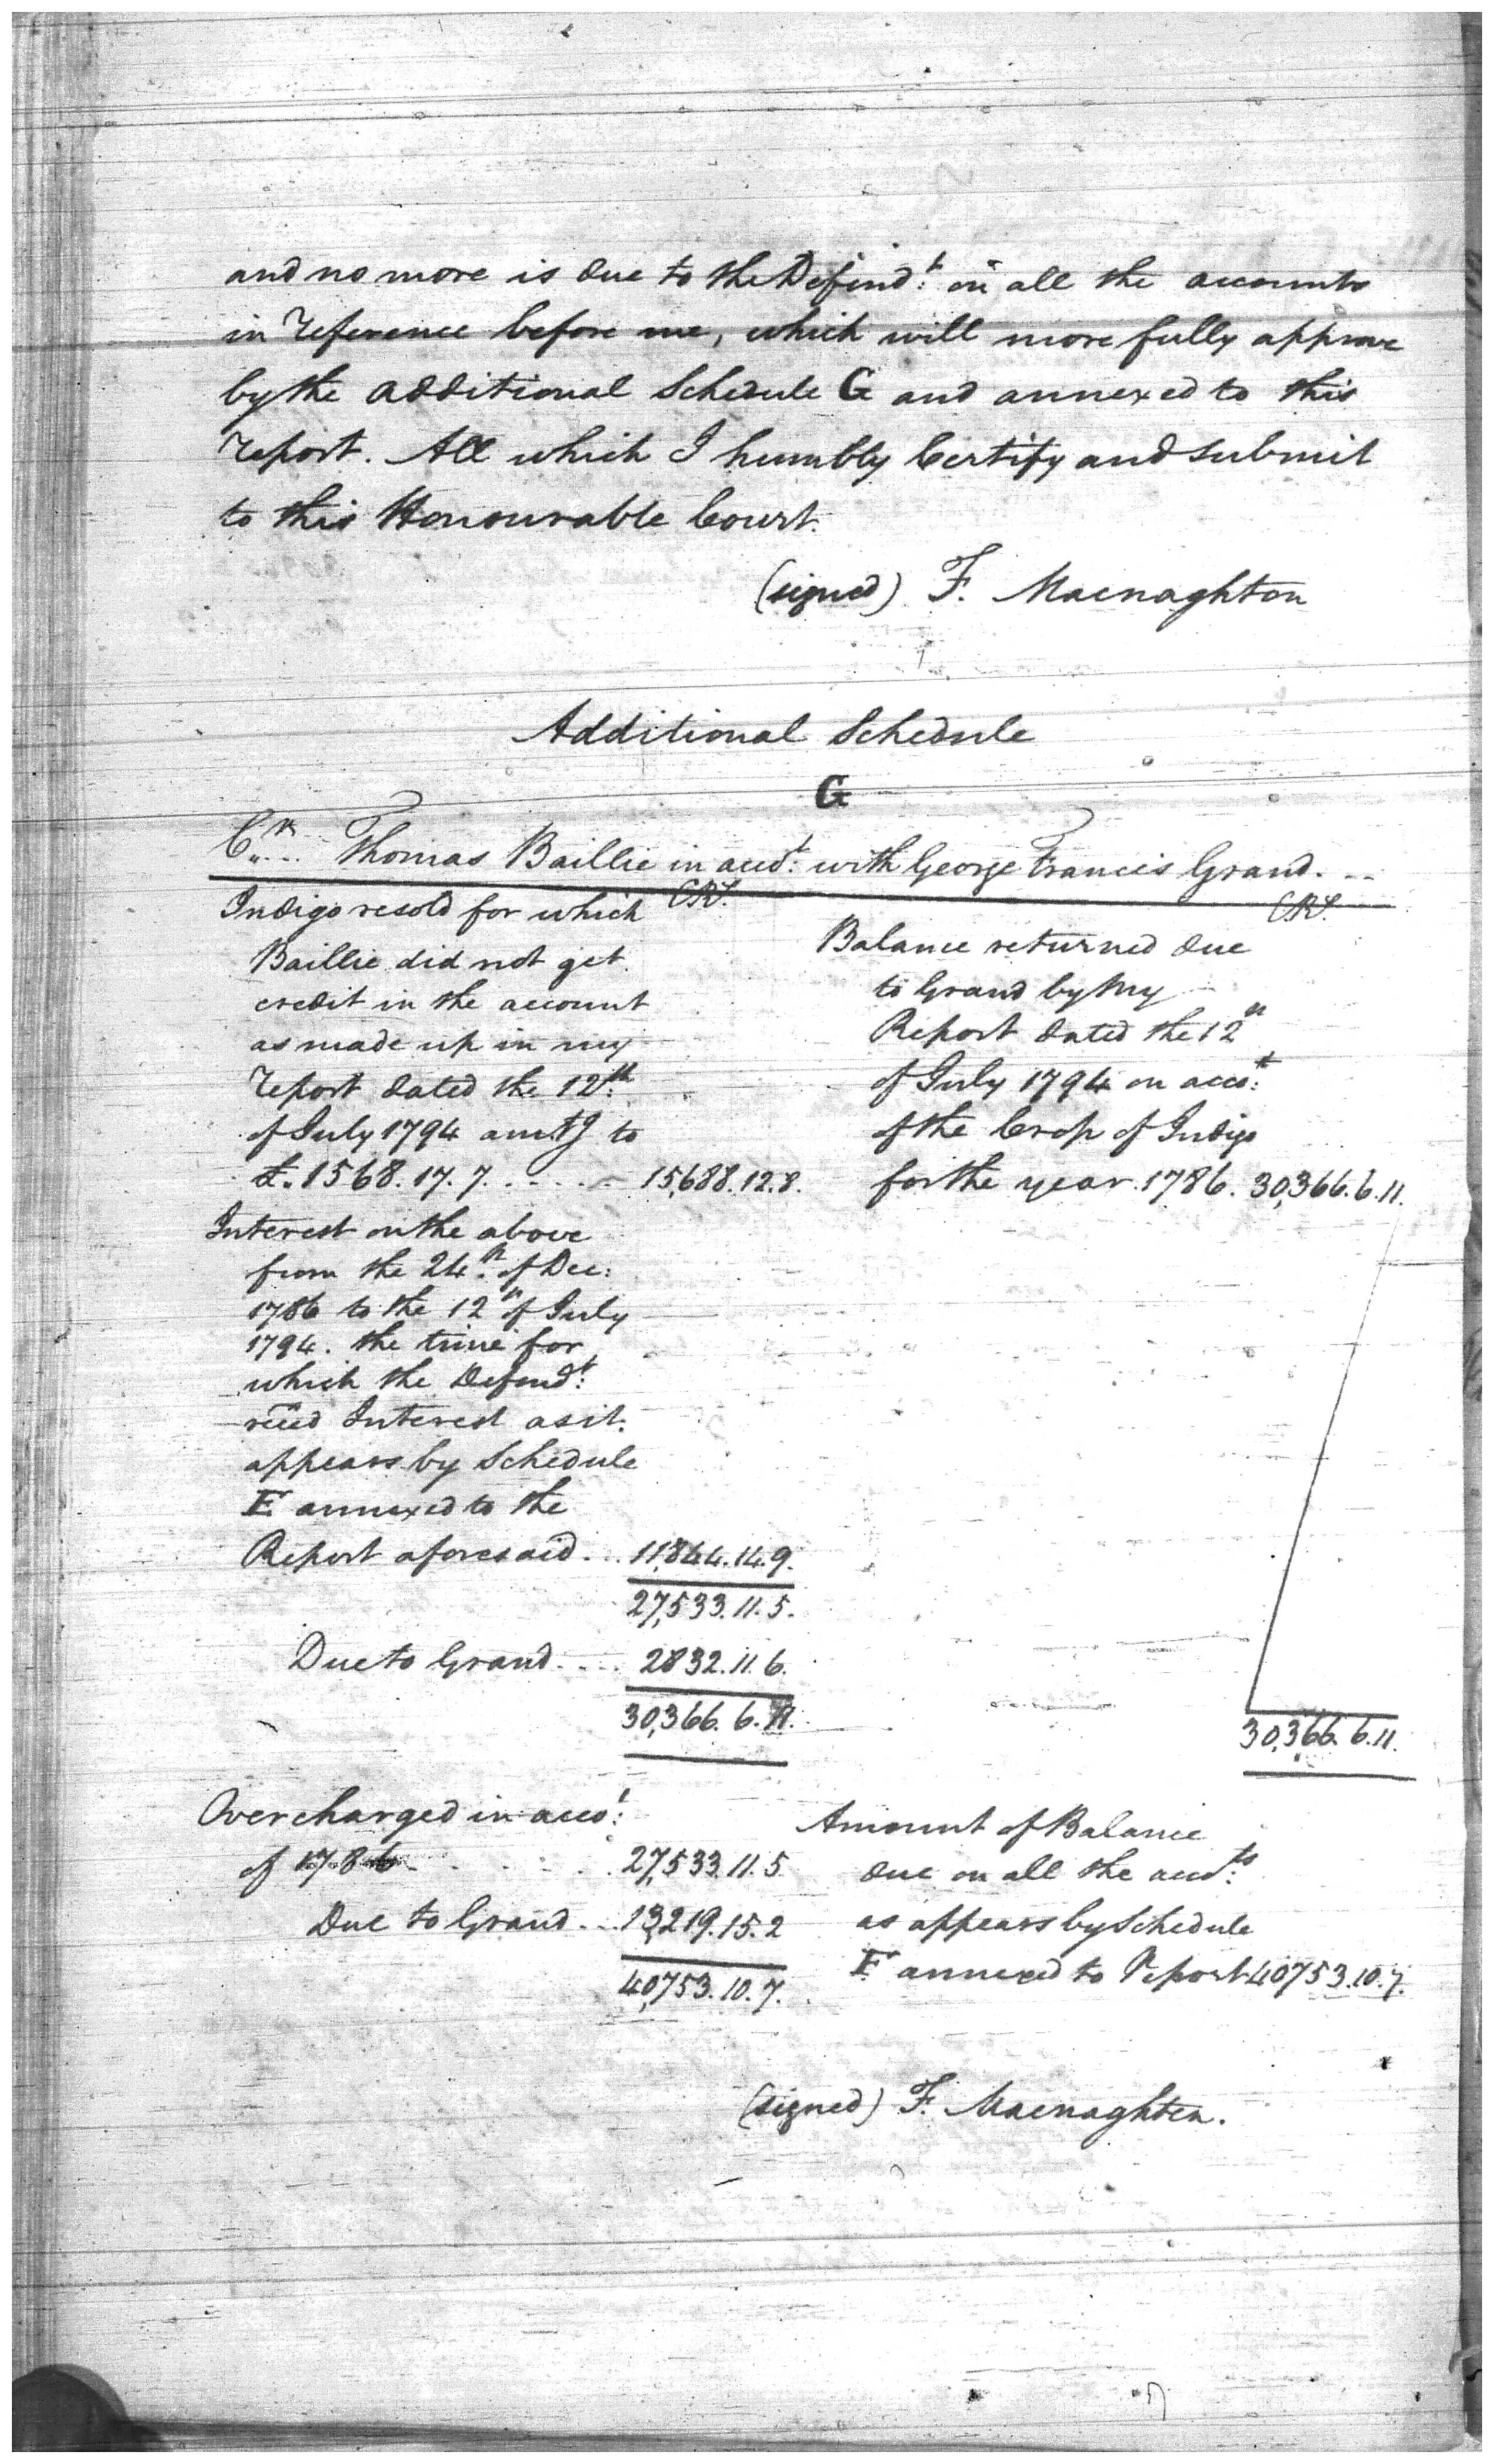 and no more is due to the Defend:t on all the accounts
in reference before me, which will more fully appeare
by the additional Schedule G and annexed to this
report. All which I humbly Certify and submit
to this Honourable Court.
(signed) F. Macnaghton
Additional Schedule
G
Cr.... Thomas Baillie in acco:t with George Francis Grand. --
Indigo resold for which CRS.
Baillie did not get
credit in the account
as made up in my
report dated the 12th
of July 1794 amtg to
£. 1568. 17. 7. . . . . . 15,688. 12. 8.
Interest on the above
from the 24th of Dec:
1786 to the 12th of July
1794. the time for
which the Defend:t
reced Interest as it
appears by Schedule
E annexed to the
Report aforesaid . . . 11,844. 14. 9.
27,533. 11. 5.
Due to Grand. . . . 2832. 11. 6.
30,366. 6. 11.
CRS.
Balance returned due
to Grand by my
Report dated the 12th
of July 1794 on acco:t
of the Crop of Indigo
for the year 1786. 30,366. 6. 11.
30,366. 6. 11.
Overcharged in acco:t
of 1786 . . . . . 27,533. 11. 5
Due to Grand . . . 13,219. 15. 2
40,753. 10. 7.
Amount of Balance
due on all the acco:ts
as appears by Schedule
F annexed to Report 40753. 10. 7.
(signed) F. Macnaghten.